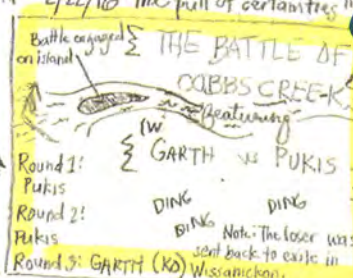 2/22/16 The pull of certainties
Battle engaged
on island
THE BATTLE OF
COBBS CREEK
Featuring
GARTH vs PUKIS
Round 1:
Pukis
Round 2:
Pukis
DING
DING
DING
Note: The loser was
sent back to exile in
Wissahickon
Round 3: GARTH (KO)